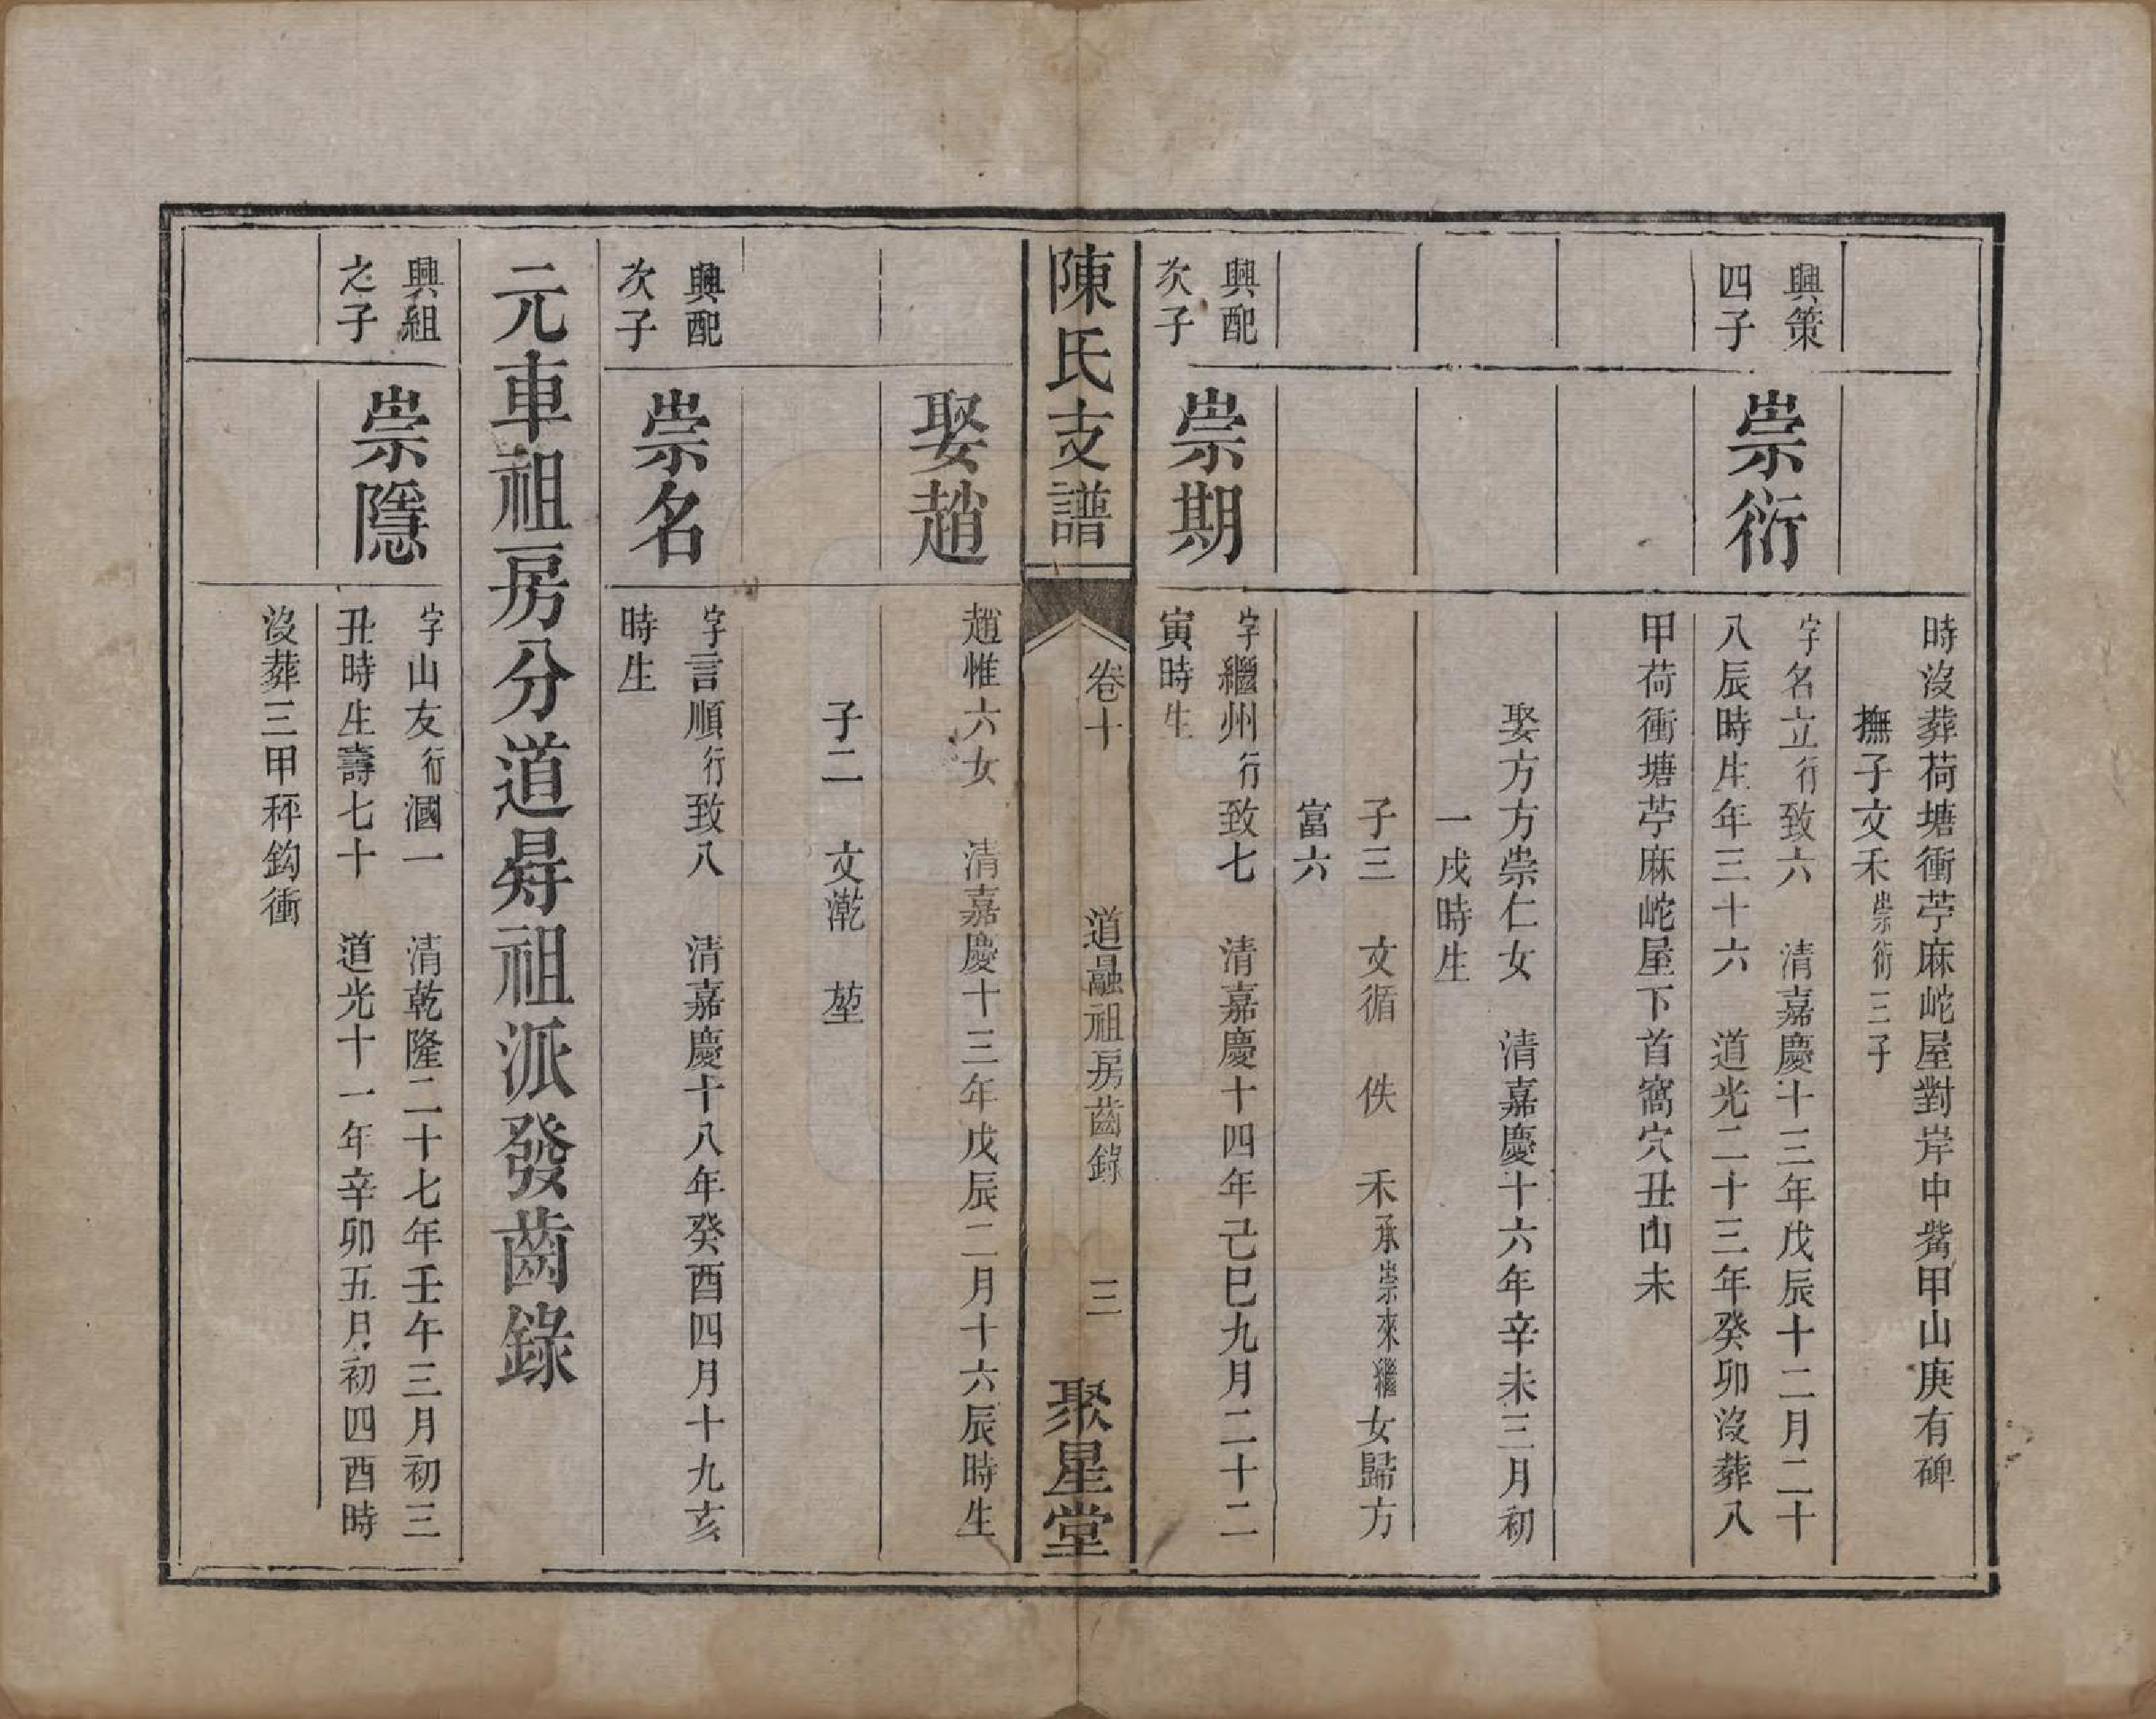 時沒葬荷塘衝苧麻屹屋對岸中嘴甲山庚有碑
撫子文禾崇衍三子
興策
四子
崇衍
字名立行致六　清嘉慶十三年戊辰十二月二十
八辰時生年三十六　道光二十三年癸卯沒葬八
甲荷衝塘苧麻屹屋下首窩穴丑山未
娶方方崇仁女　清嘉慶十六年辛未三月初
一戌時生
子三　文循　佚　禾承崇來繼女歸方
富六
興配
次子
崇期
字繼州行致七　清嘉慶十四年己巳九月二十二
寅時生
陳氏支譜
卷十
道融祖房齒錄
三
聚星堂
娶趙
趙惟六女　清嘉慶十三年戊辰二月十六辰時生
子二　文漧　堃
興配
次子
崇名
字言順行致八　清嘉慶十八年癸酉四月十九亥
時生
元車祖房分道昪祖派發齒錄
興組
之子
崇隱
字山友行漍一　清乾隆二十七年壬午三月初三
丑時生壽七十　道光十一年辛卯五月初四酉時
沒葬三甲秤鈎衝